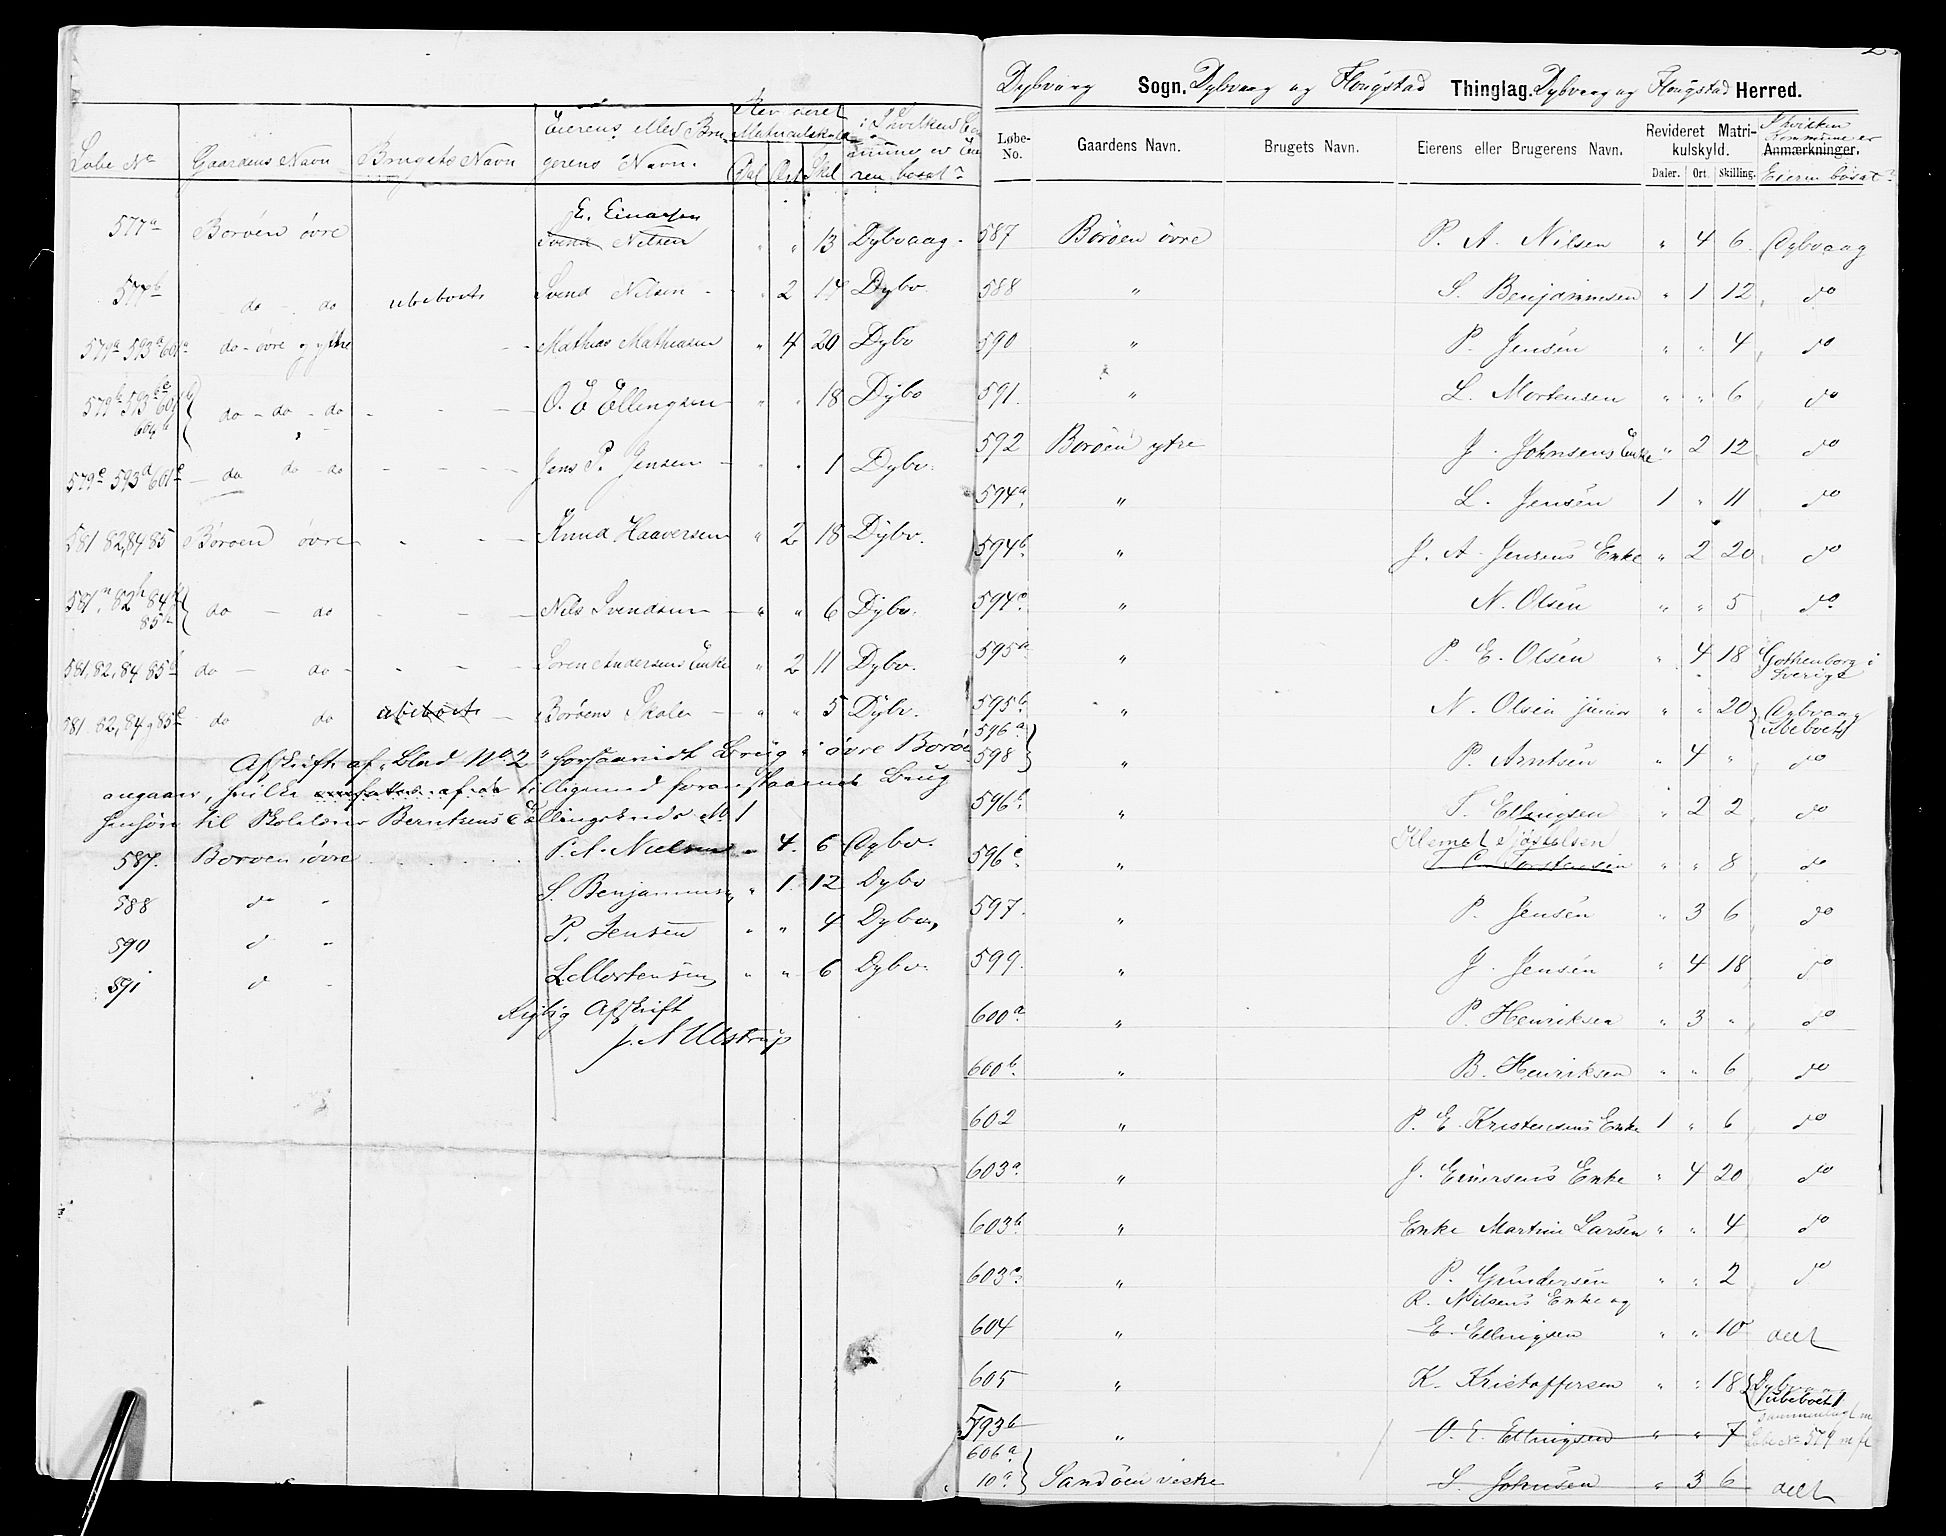 Løbe No Gaardens Navn Brugets Navn Eierens eller Bru- Revideret i hvilken Com-
gerens Navn. Matriculskyld mune er Eie-
Dal Ort Skil ren bosat?
E. Einarsen
577a Borøen øvre Svend Nilsen " " 13 Dybvaag.
577b do - do ubeboet Svend Nilsen - " 2 14 Dybv.
579a 593a 601a do - øvre og ytre - Mathias Mathiasen " 4 20 Dybv
579b 593b 601b do - do - do - - - O. E Ellingsen " " 18 Dybv
604a
579c 593a 601c - do do - do - - - Jens P. Jensen - " " 1 Dybv.
581 82, 84 85 Borøen øvre - - - Knud Haaversen " 2 18 Dybv.
581a, 82b 84
85 do - do - - - Nils Svendsen - " " 6 Dybv.
581, 82, 84 85d do - do - - - Søren Andersens Enke " 2 11 Dybv.
581. 82, 84, 85e do do ubeboet - Borøens Skole - " " 5 Dybv.
Afskrift af Blad No 2 forsaavidt Brug i øvre Borøe
angaar, hvilke omfattes af de tilligemed foranstaaende Brug
henhøre til Skolelærer Berntsens Tællingskreds No 1
587. Borøen øvre . . . . . P. A. Nielsen " 4. 6 Dybv.
588 do " S. Benjaminsen " 1. 12 Dybv
590 d " P. Jensen " " 4 Dybv,
591 d " L. Mortensen " " 6 Dybv.
Rigtig Afskrift
J. A Ulstrup
2.
Dybvaag Sogn. Dybvaag og Flougstad Thinglag. Dybvaag og Flougstad Herred.
Løbe-No. Gaardens Navn. Brugets Navn. Eierens eller Brugerens Navn. Revideret Matrikulskyld. I hvilken Kommune er
Daler. Ort. Skilling. Anmærkninger.
Eieren bosat?
587 Borøen øvre P. A. Nilsen " 4 6. Dybvaag
588 " S. Benjaminsen " 1 12 do
590 " P. Jensen " " 4 do
591. " L. Mortensen " " 6 do
592 Borøen ytre J. Johnsens Enke " 2 12 do
594a " L. Jensen 1 " 11 do
594b. " J. A. Jensens Enke " 2 20 do
594c " N. Olsen " " 5 do
595a " P. E. Olsen " 4 18 Gothenborg i
Sverige
595b " N. Olsen junior " " 20 Dybvaag
ubeboet
596a
598 " P. Arntsen " 4 " do
596b. " T. Ellingsen " 2 2 do
Klemet Gjøstolsen
596c " T C. Torstensen " " 8 do
597. " P. Jensen " 3 6 do
599. " J. Jensen " 4 18 do
600a. " P. Henriksen " 3 " do
600b. " B. Henriksen " " 6 do
602 " P. E. Kristensens Enke 1 " 6 do
603a. " J. Einersens Enke " 4 20 do
603b " Enke Martine Larsen " " 4 do
603c. " P. Gundersen " " 2 do
R. Nilsens Enke og
604 " E. Ellingsen " " 10 deelt
605 " K. Kristoffersen " " 18 Dybvaag
ubeboet
sammenlagt m
593b " O. E. Ellingsen " " 7 Løbe No 579 m fl
606a
10a Sandøen vestre S. Johnsen " 3 6 deelt